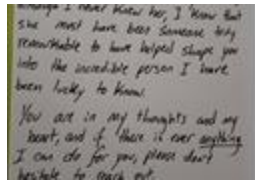 although I never knew her, I know that
she must have been someone truly
remarkable to have helped shape you
into the incredible person I have
been lucky to know.
You are in my thoughts and my
heart, and if there is ever anything
I can do for you, please don't
hesitate to reach out.